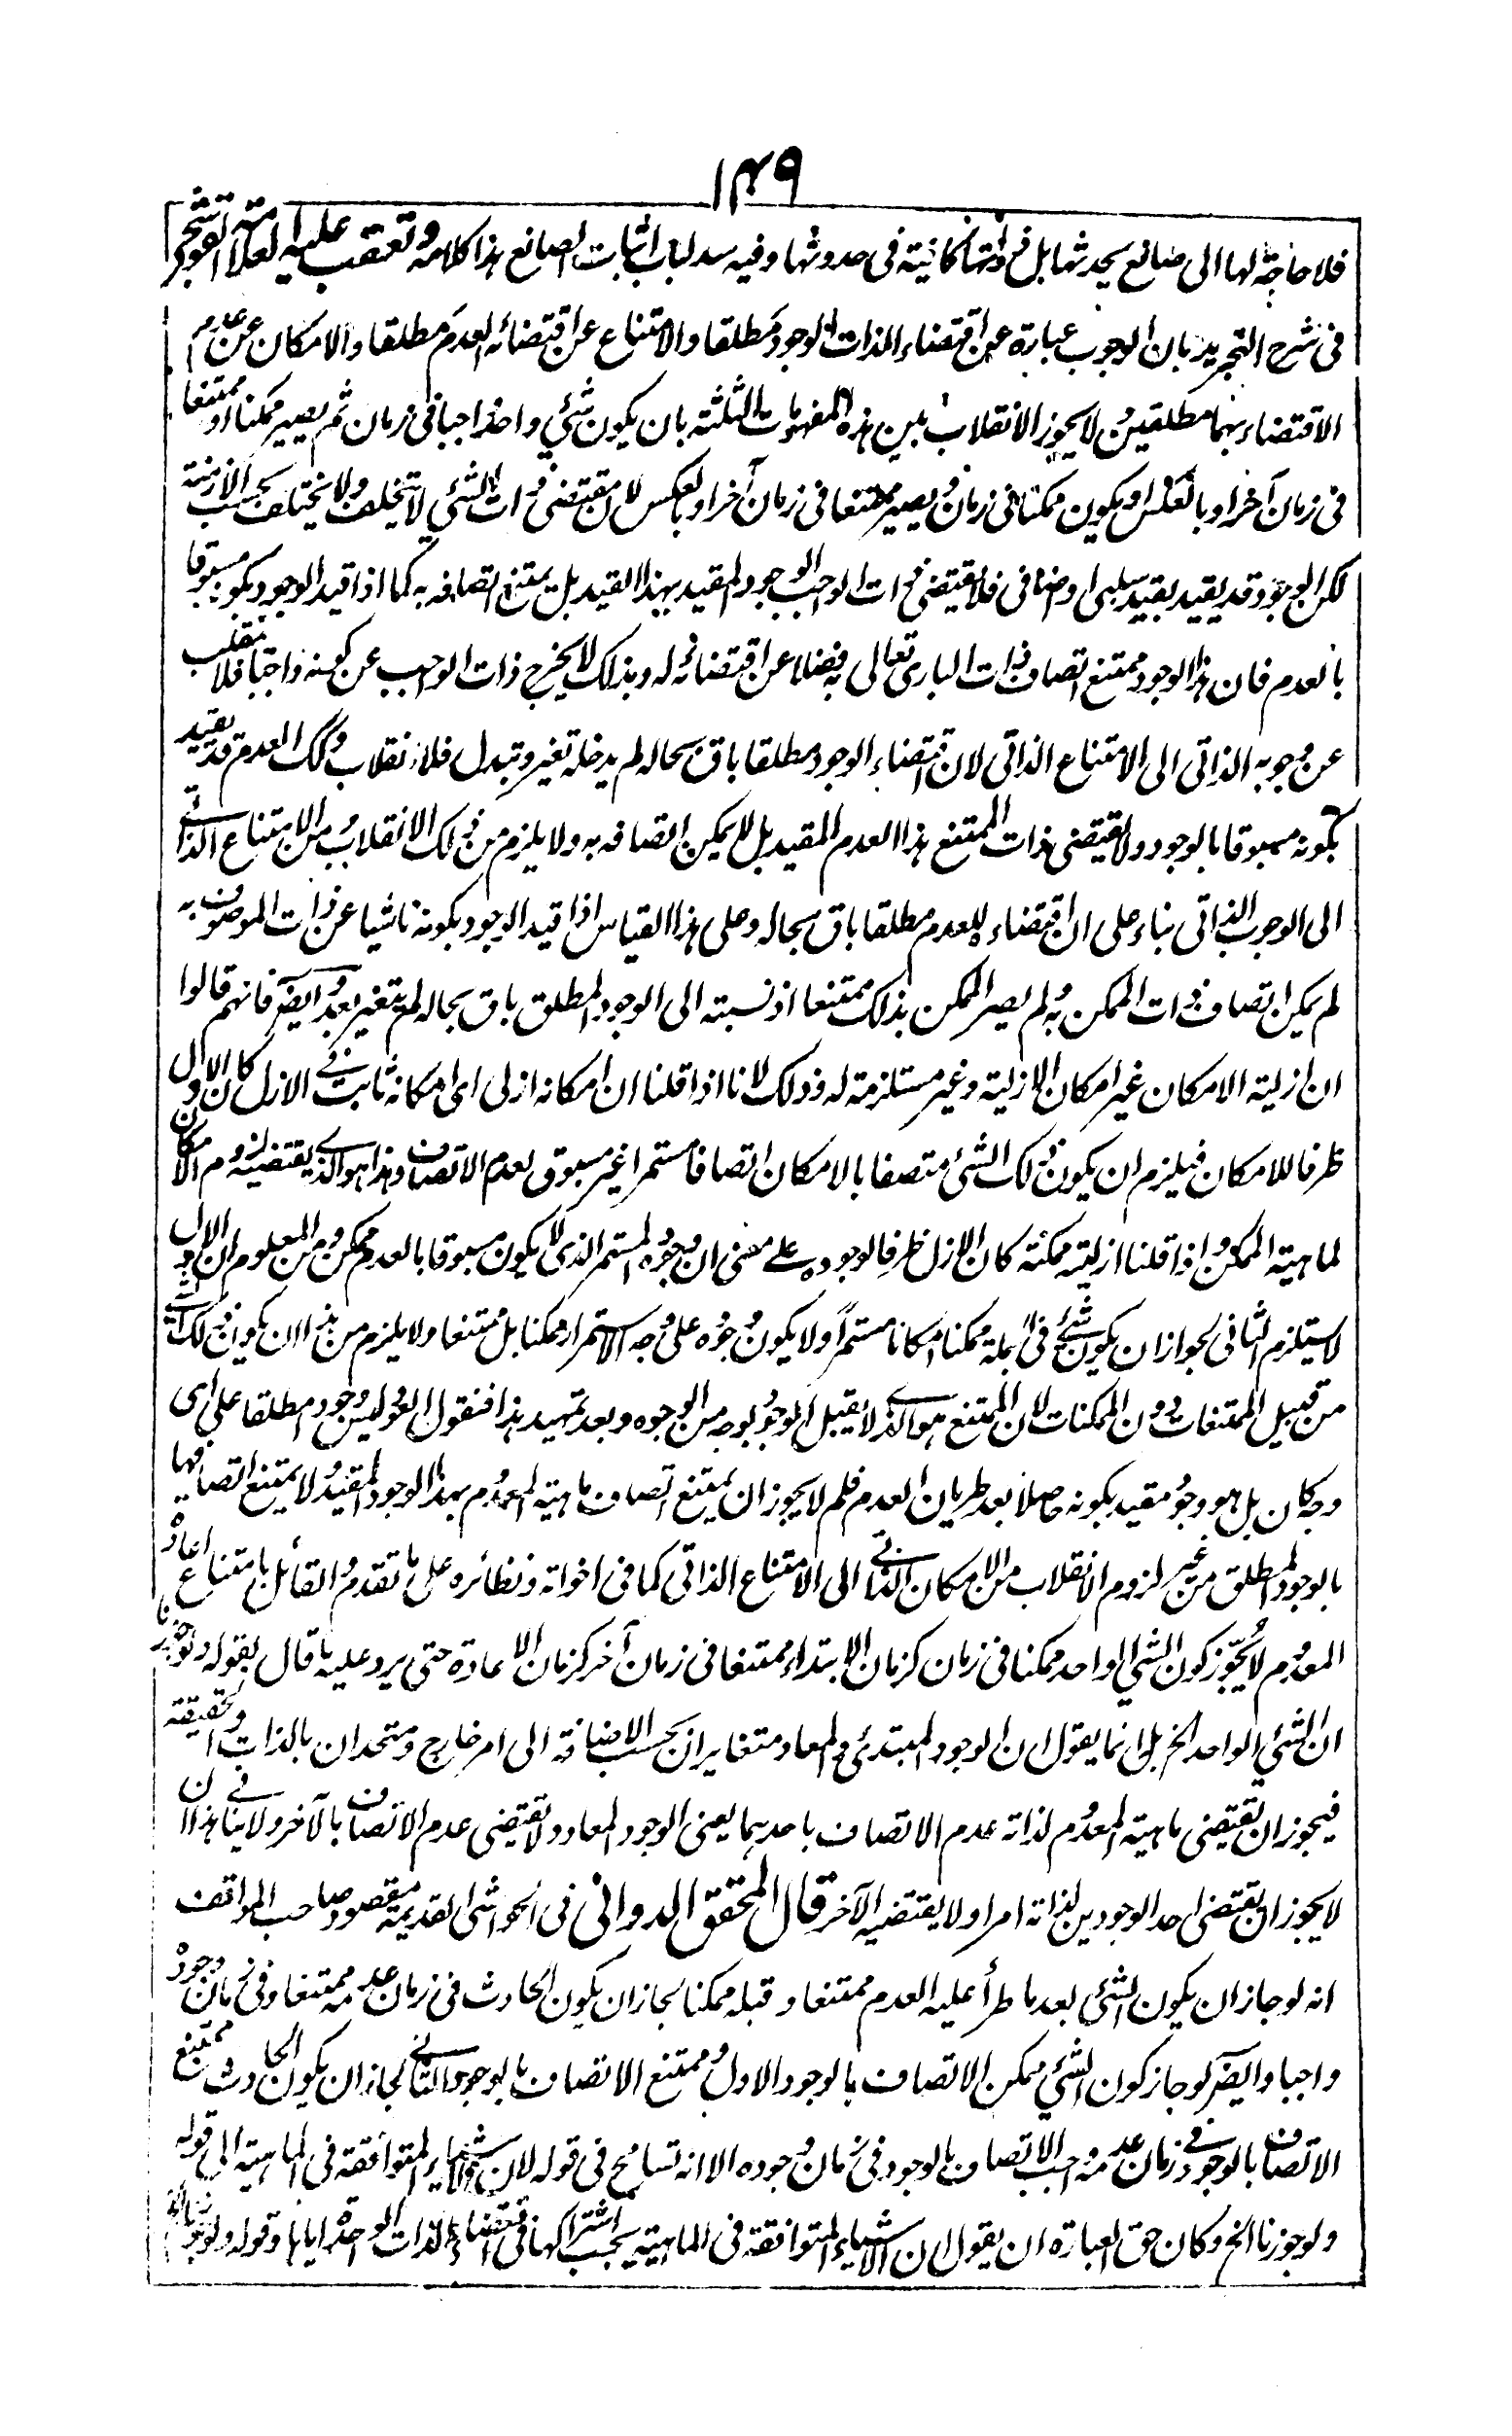 ١٤٩
فلا حاجة لها الى صانع يحدثها بل ذواتها كافية فى حدوثها وفيه سد لباب اثبات الصانع هذا كلامه وتعقب عليه العلامة القوشجى
فى شرح التجريد بان الوجوب عبارة عن اقتضاء الذات الوجود مطلقا والامتناع عن اقتضائه العدم مطلقا والامكان عن عدم
الاقتضاء بهما مطلقين لا يجوز الانقلاب بين هذه المفهومات الثلثة بان يكون شئ واحد واجبا فى زمان ثم يصير ممكنا او ممتنعا
فى زمان آخر او بالعكس او يكون ممكنا فى زمان ويصير ممتنعا فى زمان آخر او بالعكس لان مقتضى ذات الشئ لا يتخلف ولا يختلف بحسب الازمنة
لكن الوجود قد يقيد بقيد سلبى او اضافى فلا يقتضى ذات الواجب الوجود المقيد بهذا القيد بل يمتنع اتصافه به كما اذا قيد الوجود بكونه مسبوقا
بالعدم فان هذا الوجود ممتنع اتصاف ذات البارى تعالى به فضلا عن اقتضائه له وبذلك لا يخرج ذات الواجب عن كونه واجبا فلا ينقلب
عن وجوبه الذاتى الى الامتناع الذاتى لان اقتضاء الوجود مطلقا باق بحاله لم يدخله تغير وتبدل فلا انقلاب وكذلك العدم قد يقيد
بكونه مسبوقا بالوجود ولا يقتضى ذات الممتنع هذا العدم المقيد بل لا يمكن اتصافه به ولا يلزم من ذلك الانقلاب من الامتناع الذاتى
الى الوجوب الذاتى بناء على ان اقتضاءه للعدم مطلقا باق بحاله وعلى هذا القياس اذا قيد الوجود بكونه ناشيا عن ذات الموصوف به
لم يمكن اتصاف ذات الممكن به ولم يصر الممكن بذلك ممتنعا اذ نسبته الى الوجود المطلق باق بحاله لم يتغير بعد وايضر فانهم قالوا
ان ازلية الامكان غير امكان الازلية وغير مستلزمة له وذلك لانا اذا قلنا ان امكانه ازلى اى امكانه ثابت فى الازل كان الازل
ظرفا للامكان فيلزم ان يكون ذلك الشئ متصفا بالامكان اتصافا مستمرا غير مسبوق بعدم الاتصاف وهذا هو الذى يقتضيه لزوم الامكان
لماهية الممكن واذا قلنا ازليته ممكنة كان الازل ظرفا لوجوده على معنى ان وجوده المستمر الذى لا يكون مسبوقا بالعدم ممكن ومن المعلوم ان الاول
لا يستلزم الثانى لجواز ان يكون شئ فى الجملة ممكنا امكانا مستمرا ولا يكون وجوده على وجه الاستمرار ممكنا بل ممتنعا ولا يلزم من هذا ان يكون ذلك الشئ
من قبيل الممتنعات دون الممكنات لان الممتنع هو الذى لا يقبل الوجود بوجه من الوجوه وبعد تمهيد هذا فنقول العود ليس وجودا مطلقا على اى
وجه كان بل هو وجود مقيد بكونه حاصلا بعد طريان العدم فلم لا يجوز ان يمتنع اتصاف ماهية المعدوم بهذا الوجود المقيد ولا يمتنع اتصافها
بالوجود المطلق من غير لزوم الانقلاب من الامكان الذاتى الى الامتناع الذاتى كما فى اخواته ونظائره على ما تقدم والقائل بامتناع اعادة
المعدوم لا يجوز كون الشئ الواحد ممكنا فى زمان كزمان الابتداء ممتنعا فى زمان آخر كزمان الاعادة حتى يرد عليه ما قال بقوله ولو جوزنا
ان الشئ الواحد الخ بل انما يقول ان الوجود المبتدئ والمعاد متغايران بحسب الاضافة الى امر خارج ومتحدان بالذات والحقيقة
فيجوز ان تقتضى ماهية المعدوم لذاته عدم الاتصاف باحدهما يعنى الوجود المعاد ولا تقتضى عدم الاتصاف بالآخر ولا ينافى هذا ان
لا يجوز ان يقتضى احد الوجودين لذاته امرا ولا يقتضيه الآخر قال المحقق الدوانى فى الحواشى القديمة مقصود صاحب المواقف
انه لو جاز ان يكون الشئ بعد ما طرأ عليه العدم ممتنعا وقبله ممكنا لجاز ان يكون الحادث فى زمان عدمه ممتنعا وفى زمان وجوده
واجبا وايضر لو جاز كون الشئ ممكن الاتصاف بالوجود الاول وممتنع الاتصاف بالوجود الثانى لجاز ان يكون الحادث ممتنع
الاتصاف بالوجود فى زمان عدمه واجب الاتصاف بالوجود فى زمان وجوده الا انه تسامح فى قوله لان الاشياء المتوافقة فى الماهية الى قوله
ولو جوزنا الخ وكان حق العبارة ان يقول ان الاشياء المتوافقة فى الماهية يجب اشتراكها فى اقتضاء الذات الواحدة اياها وقوله ولو